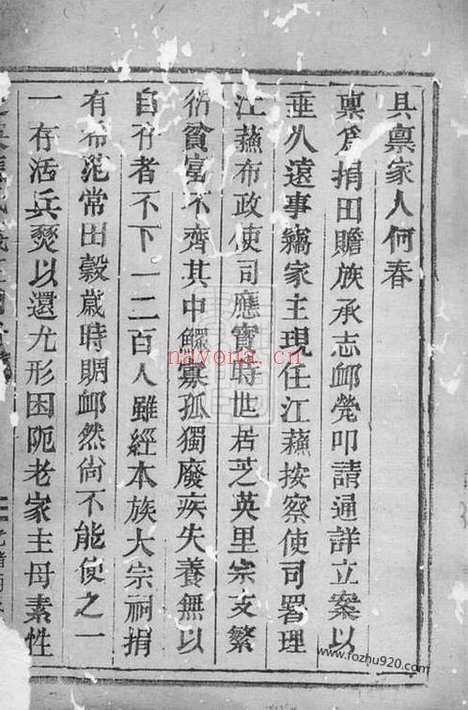 具稟家人何春
稟爲捐田贍族承志卹煢叩請通詳立案以
垂久遠事竊家主現任江蘇按察使司署理
江蘇布政使司應寶時世居芝英里宗支繁
衍貧富不齊其中鰥寡孤獨廢疾失養無以
自存者不下一二百人雖經本族大宗祠捐
有布沱常田穀歲時賙卹然尙不能使之一
一存活兵燹以還尤形困阨老家主母素性
nayona.cn
www.fozhu920.com